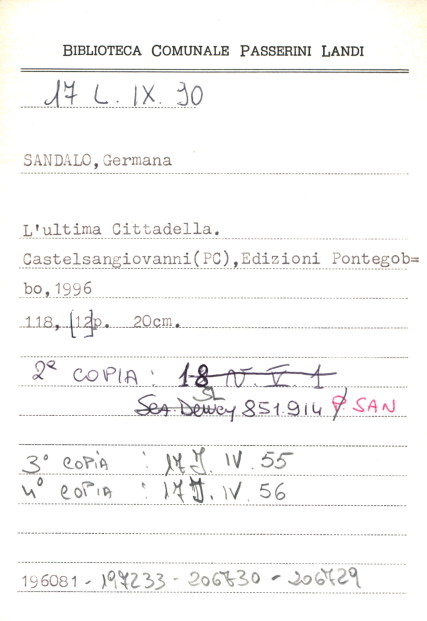 BIBLIOTECA COMUNALE PASSERINI LANDI
17 L. IX. 90
SANDALO, Germana
L'ultima Cittadella.
Castelsangiovanni(PC), Edizioni Pontegob=
bo, 1996
118, [12]p. 20cm.
2ª COPIA : 18 N. V. 1
SL
Sez Dewey 851.914 SAN
3° COPIA : 17 J. IV. 55
4° COPIA : 17 J. IV. 56
196081 - 197233 - 206730 - 206729